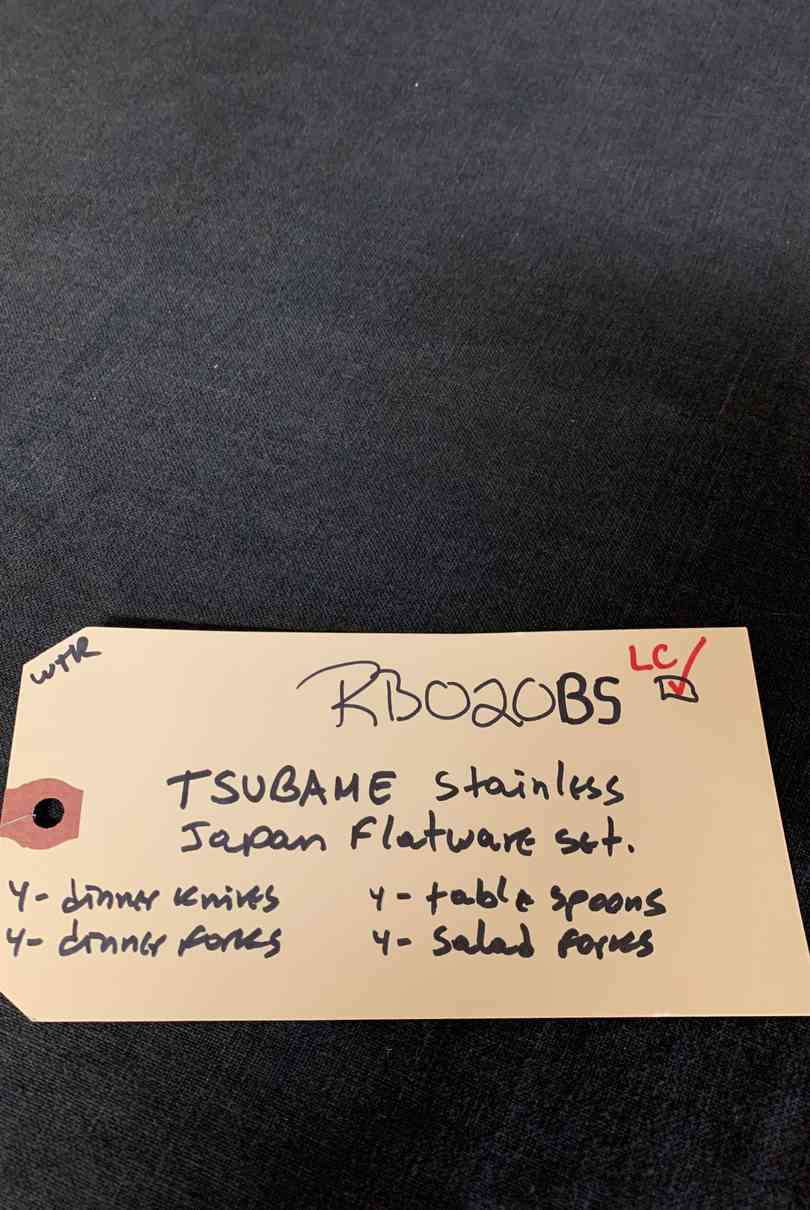 WTR
LC
RB020BS
TSUBAME Stainless
Japan Flatware set.
4- dinner knives 4- table spoons
4- dinner forks 4- Salad forks